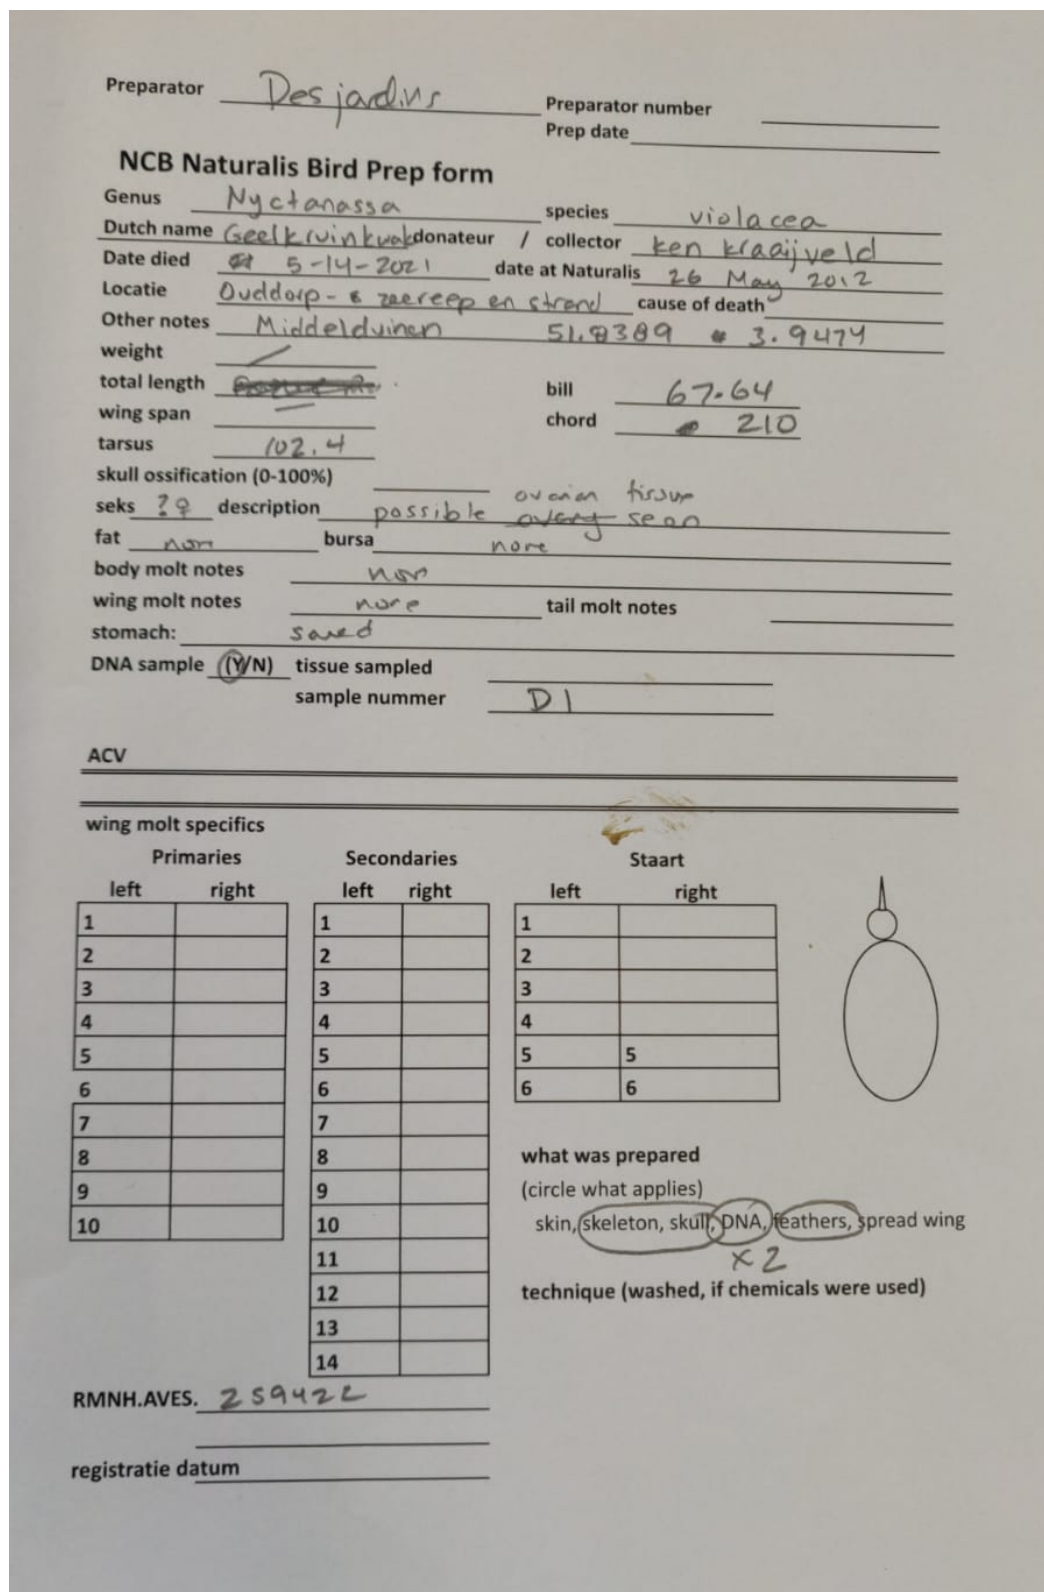 Preparator Desjardins
Preparator number
Prep date
NCB Naturalis Bird Prep form
Genus Nyctanassa species violacea
Dutch name Geelkruinkwak donateur / collector ken kraaijveld
Date died 5-14-2021 date at Naturalis 26 May 2012
Locatie Ouddorp - zeereep en strand cause of death
Other notes Middelduinen 51.8389 3.9474
weight
total length bill 67.64
wing span chord 210
tarsus 102.4
skull ossification (0-100%)
ovarian tissue
seks ?♀ description possible ovary seen
fat non bursa none
body molt notes non
wing molt notes none tail molt notes
stomach: saved
DNA sample (Y/N) tissue sampled
sample nummer D1
ACV
wing molt specifics
Primaries Secondaries Staart
left right left right left right
1 1 1
2 2 2
3 3 3
4 4 4
5 5 5 5
6 6 6 6
7 7
8 8 what was prepared
9 9 (circle what applies)
10 10 skin, skeleton, skull, DNA, feathers, spread wing
11 x2
12 technique (washed, if chemicals were used)
13
14
RMNH.AVES. 259422
registratie datum